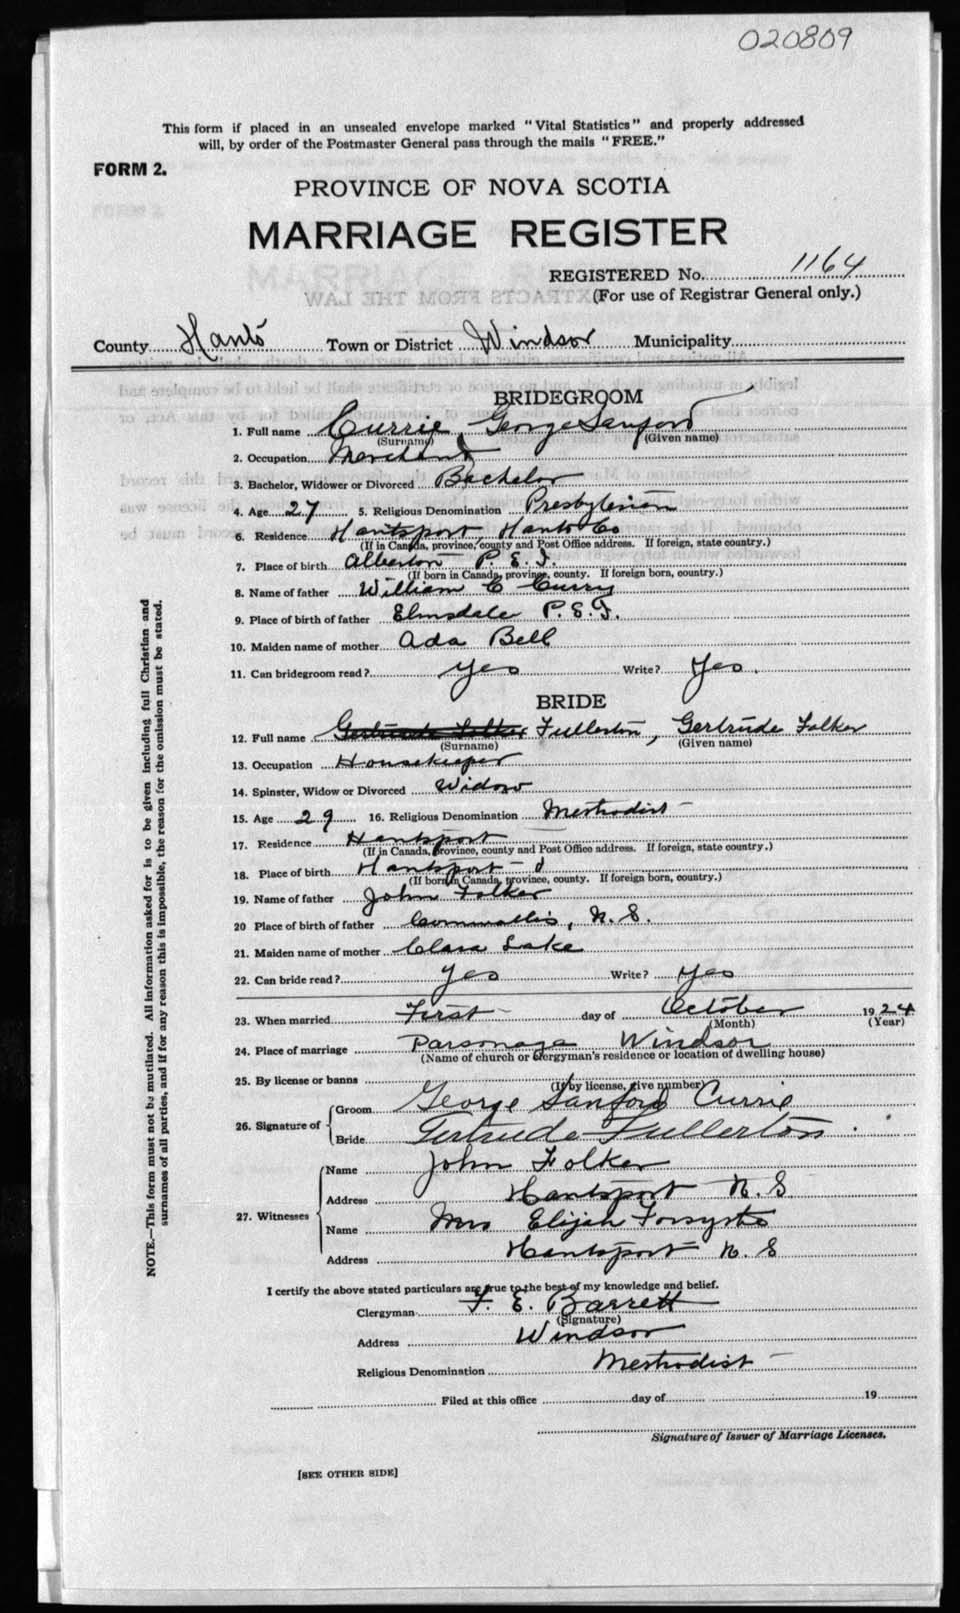 020809
This form if placed in an unsealed envelope marked "Vital Statistics" and properly addressed
will, by order of the Postmaster General pass through the mails "FREE."
FORM 2.
PROVINCE OF NOVA SCOTIA
MARRIAGE REGISTER
REGISTERED No. 1164
(For use of Registrar General only.)
County Hants Town or District Windsor Municipality
BRIDEGROOM
1. Full name Currie, George Sanford
(Surname) (Given name)
2. Occupation Merchant
3. Bachelor, Widower or Divorced Bachelor
4. Age 27 5. Religious Denomination Presbyterian
6. Residence Hantsport, Hants Co
(If in Canada, province, county and Post Office address. If foreign, state country.)
7. Place of birth Alberton P.E.I.
(If born in Canada, province, county. If foreign born, country.)
8. Name of father William C Curry
9. Place of birth of father Elmsdale P.E.I.
10. Maiden name of mother Ada Bell
11. Can bridegroom read? yes Write? Yes.
BRIDE
12. Full name Gertrude Folker Fullerton, Gertrude Folker
(Surname) (Given name)
13. Occupation Housekeeper
14. Spinster, Widow or Divorced Widow
15. Age 29 16. Religious Denomination Methodist
17. Residence Hantsport
(If in Canada, province, county and Post Office address. If foreign, state country.)
18. Place of birth Hantsport
(If born in Canada, province, county. If foreign born, country.)
19. Name of father John Folker
20 Place of birth of father Cornwallis, N.S.
21. Maiden name of mother Clara Lake
22. Can bride read? yes Write? yes
23. When married First day of October 1924
(Month) (Year)
24. Place of marriage Parsonage Windsor
(Name of church or clergyman's residence or location of dwelling house)
25. By license or banns
(If by license, give number)
26. Signature of Groom George Sanford Currie
Bride Gertrude Fullerton
27. Witnesses Name John Folker
Address Hantsport N.S
Name Mrs Elijah Forsythe
Address Hantsport N.S
I certify the above stated particulars are true to the best of my knowledge and belief.
Clergyman F. E. Barrett
(Signature)
Address Windsor
Religious Denomination Methodist
Filed at this office day of 19
Signature of Issuer of Marriage Licenses.
[SEE OTHER SIDE]
NOTE.—This form must not be mutilated. All information asked for is to be given including full Christian and
surnames of all parties, and if for any reason this is impossible, the reason for the omission must be stated.